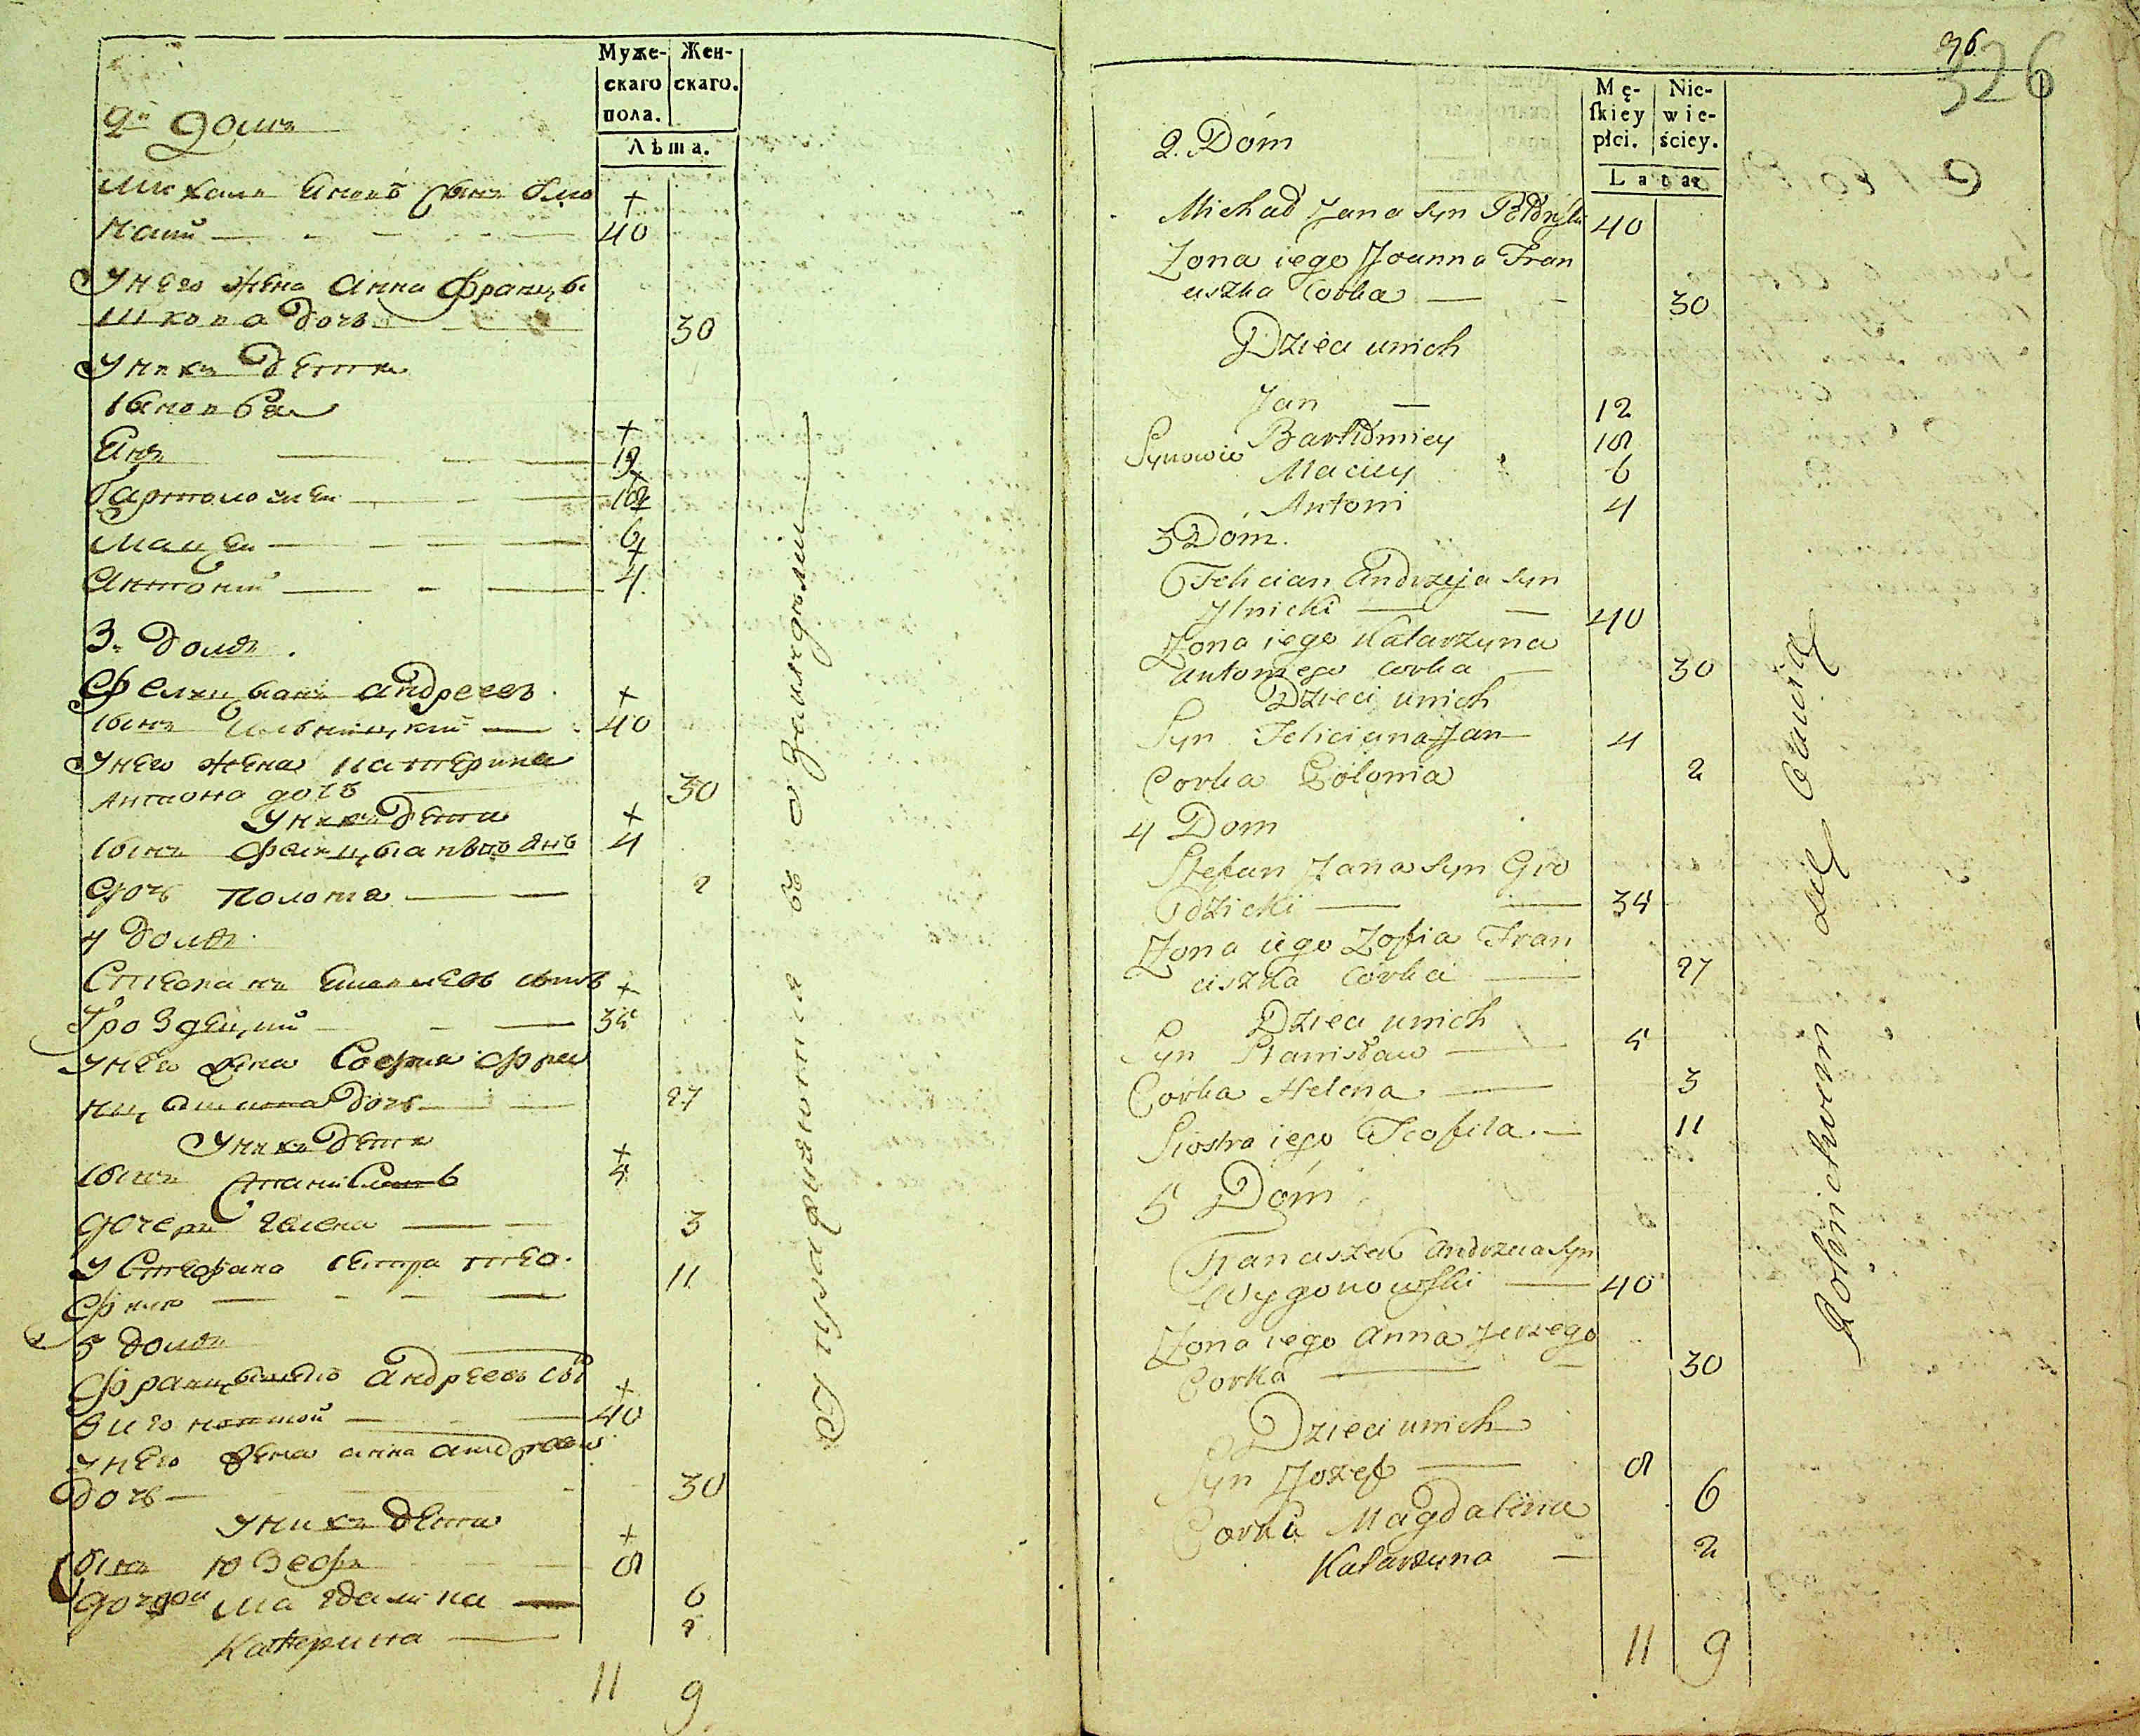 Муже-
скаго
пола.
Жен-
скаго.
Лѣта.
2й Домъ
Михаилъ Яновъ Сынъ
40
У него жена Анна Францы
шкова дочь 30
У нихъ дети
Сыновья
Янъ 12
Бартоломей 18
Мацей 6
Антоній 4
3. Домъ.
Фелицыанъ Андреевъ
Сынъ Ильницкій 40
У него жена Катерина
Антона дочь 30
У нихъ дети
Сынъ Янъ 4
Дочь Полоня 2
4 Домъ
Стефанъ сынъ
Гродзицкій 35
У него жена Софія Фра
нцишкова дочь 27
У нихъ дети
Сынъ Станиславъ 5
Дочери Гелена 3
У Стефана сестра Тео-
филія 11
5 Домъ
Францышекъ Андреевъ Сы
40
У него жена Анна
дочь 30
У нихъ дети
Сынъ Юзефъ 8
Дочери Магдалина 6
Катерина 2
11 9
Упражняются въ Земледѣлии
36
326
Mę-
skiey
płci.
Nie-
wie-
ściey.
Lata.
2. Dóm
Michał Jana syn 40
Zona iego Joanna Fran
ciszka Corka 30
Dzieci u nich
Jan 12
Synowie Bartłomiey 18
Maciey 6
Antoni 4
3 Dóm.
Felician Andrzeja syn
Jlnicki 40
Zona iego Katarzyna
Antoniego corka 30
Dzieci u nich
Syn Feliciana Jan 4
Corka Polonia 2
4 Dom
Stefan Jana syn Gro
dzicki 35
Zona iego Zofia Fran
ciszka Córka 27
Dzieci u nich
Syn Stanisław 5
Corka Helena 3
Siostra iego Teofila 11
5 Dóm
Franciszek Andrzeia syn
Wygonowski 40
Zona iego Anna Jerzego
Corka 30
Dzieci u nich
Syn Jozef 8
Corki Magdalena 6
Katarzyna 2
11 9
Rolnictwem się bawią